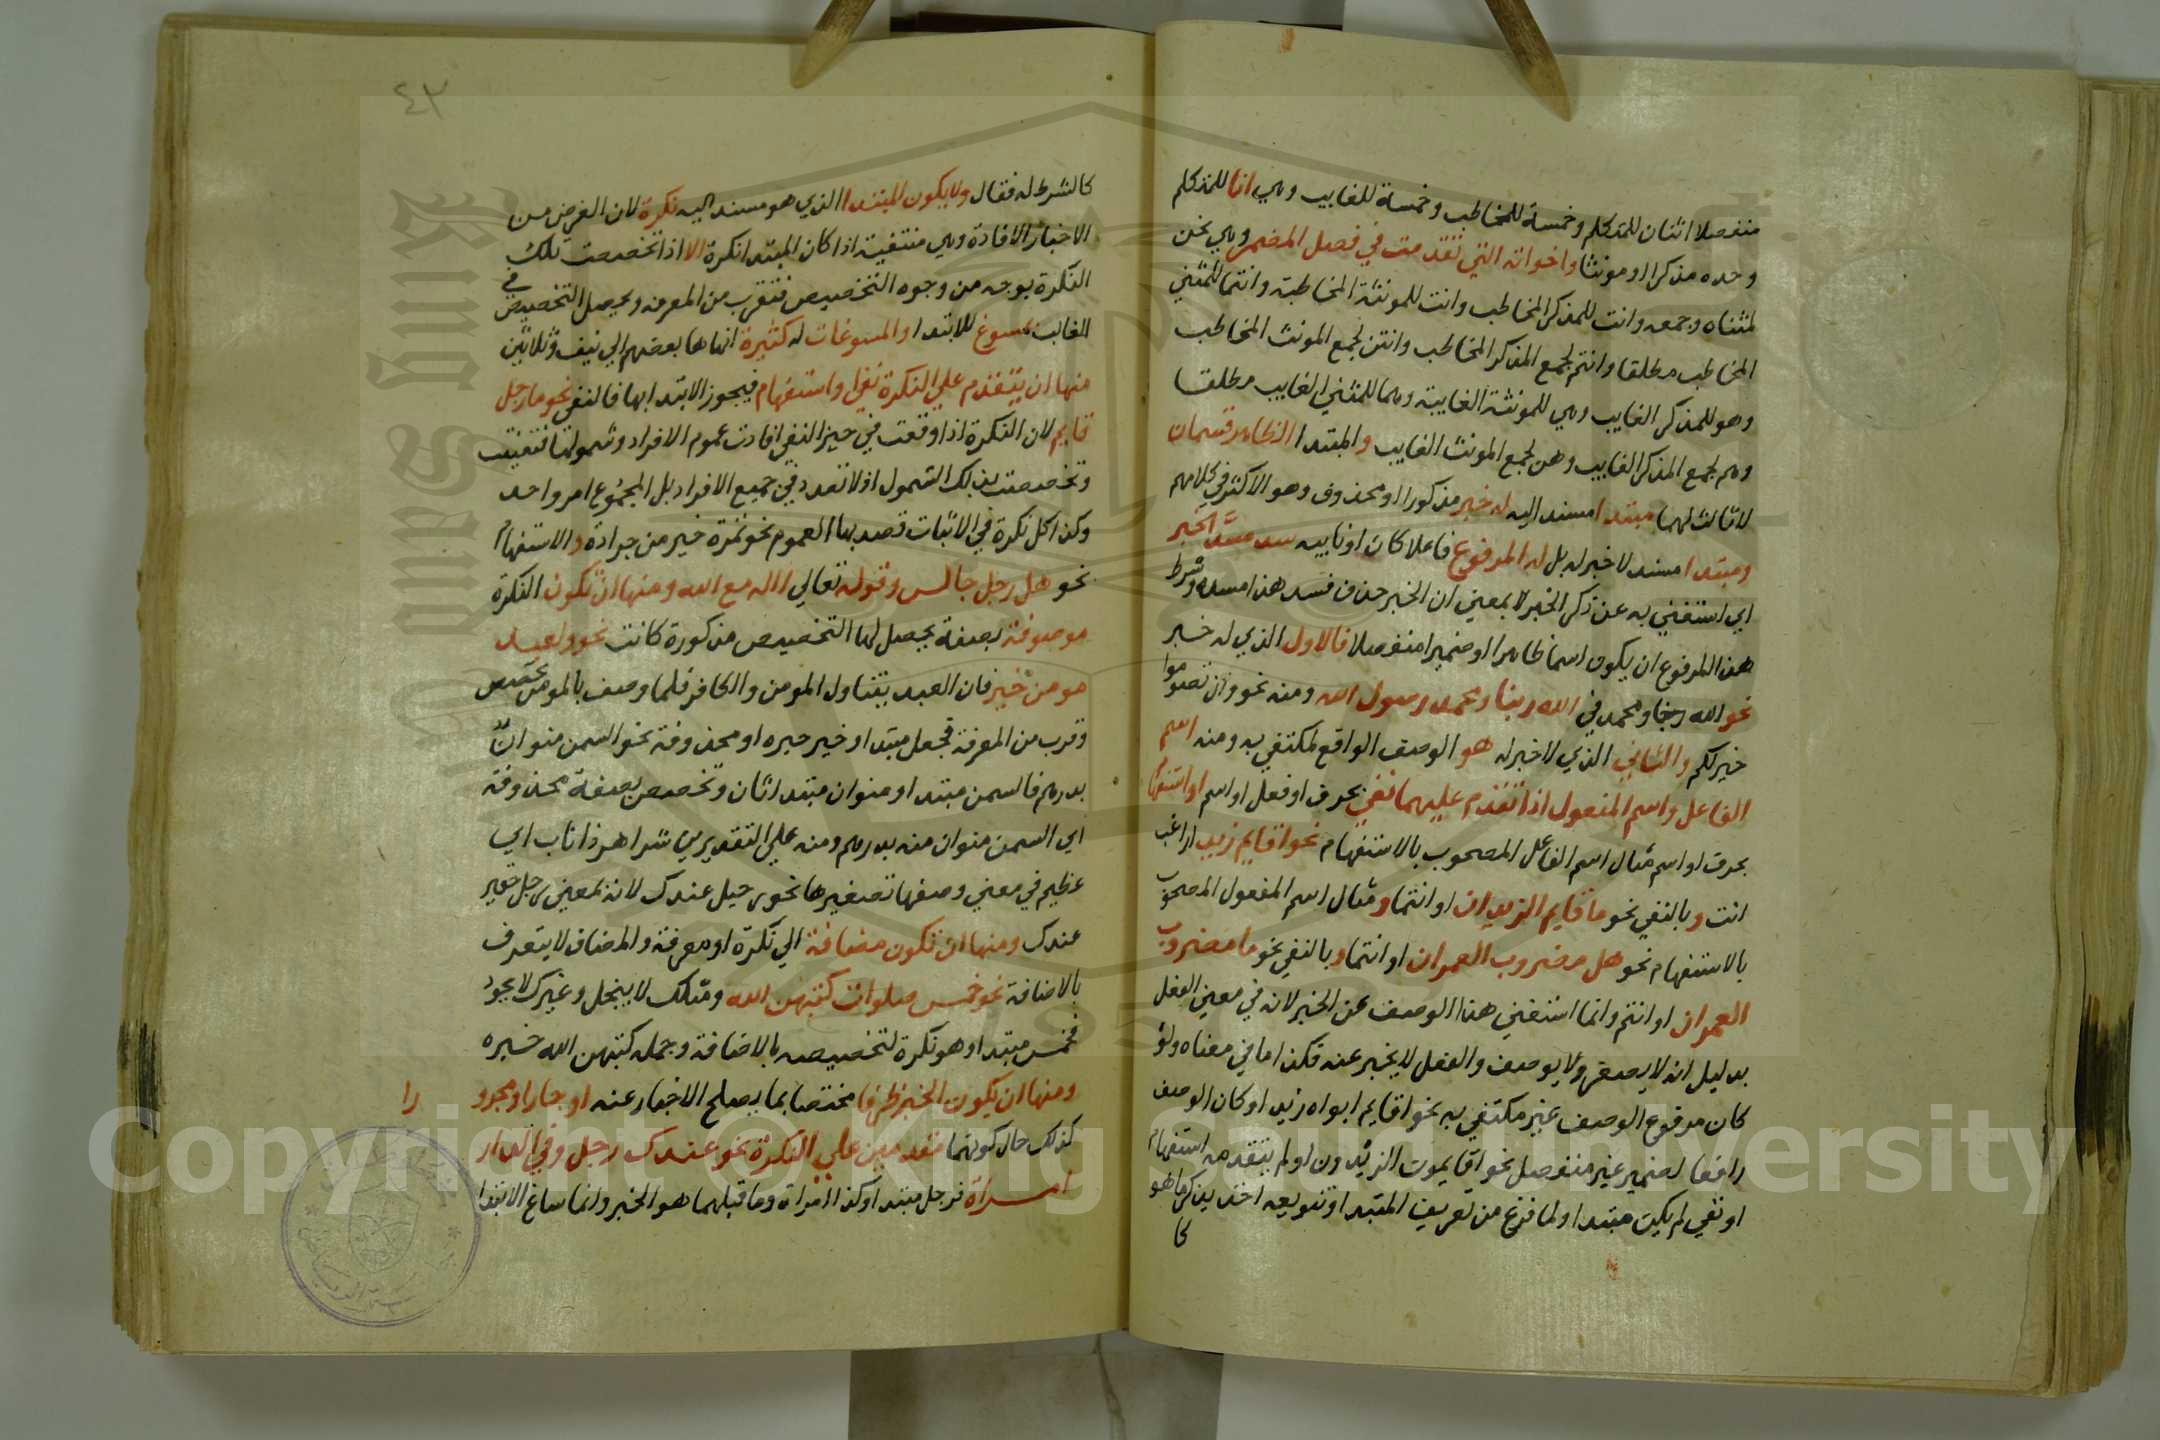 منفصلا اثنان للمتكلم وخمسة للمخاطب وخمسة للغايب وهي انا للمتكلم
وحده مذكرا او مونثا واخواته التي تقدمت في فصل المضمر وهي نحن
لمثناه وجمعه وانت للمذكر المخاطب وانت للمونثة المخاطبة وانتما للمثني
المخاطب مطلقا وانتم لجمع المذكر المخاطب وانتن لجمع المونث المخاطب
وهو للمذكر الغايب وهي للمونثة الغايبة وهما للمثني الغايب مطلقا
وهم لجمع المذكر الغايب وهن لجمع المونث الغايب والمبتدا الظاهر قسمان
لا ثالث لهما مبتدا مسند اليه له خبر مذكورا او محذوف وهو الاكثر في كلامهم
ومبتدا مسند لا خبر له بل له المرفوع فاعلا كان او نايبه سد مسد الخبر
اي استغني به عن ذكر الخبر لا بمعني ان الخبر حذف فسد هذا مسده وشرط
هذا المرفوع ان يكون اسما ظاهرا او ضميرا منفصلا فالاول الذي له خبر
نحو الله ربنا ومحمد في الله ربنا ومحمد رسول الله ومنه نحو وان تصوموا
خير لكم والثاني الذي لا خبر له هو الوصف الواقع لمكتفي به ومنه اسم
الفاعل واسم المفعول اذا تقدم عليهما نفي بحرف او فعل او اسم او استفهام
بحرف او اسم مثال اسم الفاعل المصحوب بالاستفهام نحو اقايم زيد اراغب
انت وبالنفي نحو ما قايم الزيدان او انتما ومثال اسم المفعول المصحوب
بالاستفهام نحو هل مضروب العمران او انتما وبالنفي نحو ما مضروب
العمران او انتم وانما استغني هذا الوصف عن الخبر لانه في معني الفعل
بدليل انه لا يصغر ولا يوصف والفعل لا يخبر عنه فكذا ما في معناه ولو
كان مرفوع الوصف غير مكتفي به نحو اقايم ابواه زيد او كان الوصف
رافعا لضمير غير منفصل نحو اقايموت الزيدون او لم يتقدمه استفهام
او نفي لم يكن مبتدا ولما فرغ من تعريف المبتدا وتنويعه اخذ يذكر ما هو
كا
٤٣
كالشرط له فقال ولا يكون المبتدا الذي هو مسند اليه نكرة لان الغرض من
الاخبار الافادة وهي منتفية اذا كان المبتدا نكرة الا اذا تخصصت تلك
النكرة بوجه من وجوه التخصيص فتقرب من المعرفه ويحصل التخصيص في
الغالب بمسوغ للابتدا والمسوغات له كثيرة انهاها بعضهم الي نيف وثلاثين
منها ان يتقدم علي النكرة نفي او استفهام فيجوز الابتدا بها فالنفي نحو ما رجل
قايم لان النكرة اذا وقعت في حيز النفي افادت عموم الافراد وشمولها فتعينت
وتخصصت بذلك الشمول اذ لا تعدد في جميع الافراد بل المجموع امر واحد
وكذا كل نكرة في الاثبات قصد بها العموم نحو تمرة خير من جرادة والاستفهام
نحو هل رجل جالس وقوله تعالي االه مع الله ومنها ان تكون النكرة
موصوفة بصفة يحصل لها التخصيص مذكورة كانت نحو ولعبد
مومن خير فان العبد يتناول المومن والكافر فلما وصف بالمومن تخصص
وقرب من المعرفة فجعل مبتدا وخير خبره او محذوفة نحو السمن منوان
بدرهم فالسمن مبتدا ومنوان مبتدا ثان وتخصص بصفة محذوفة
اي السمن منوان منه بدرهم ومنه علي التقديرين شر اهر ذا ناب اي
عظيم في معني وصفها تصغيرها نحو رجيل عندك لانه بمعني رجل حقير
عندك ومنها ان تكون مضافة الي نكرة او معرفة والمضاف لا يتعرف
بالاضافة نحو خمس صلوات كتبهن الله ومثلك لا يبخل وغيرك لا يجود
فخمس مبتدا وهو نكرة لتخصيصه بالاضافة وجمله كتبهن الله خبره
ومنها ان يكون الخبر ظرفا مختصا بما يصلح الاخبار عنه او جارا ومجرو را
كذلك حال كونهما متقدمين علي النكرة نحو عندك رجل وفي الدار
امراة فرجل مبتدا وكذا امراة وما قبلهما هو الخبر وانما ساغ الابتدا
Copyright © King Saud University